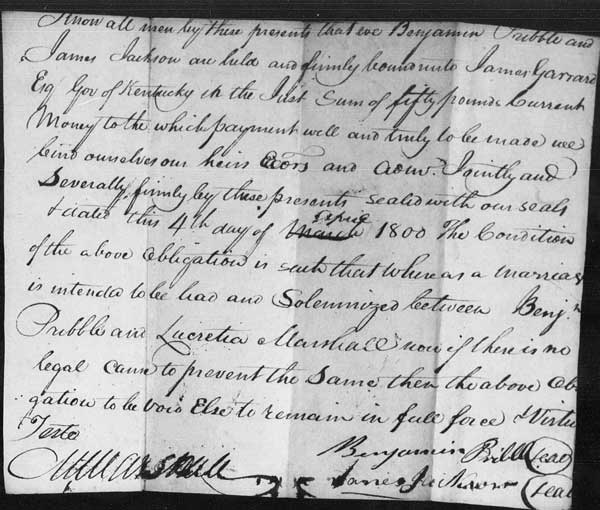 Know all men by these presents that we Benjamin Pribble and
James Jackson are held and firmly bound unto James Garrard
Esq Gov of Kentucky in the Just Sum of fifty pounds Current
Money to the which payment well and truly to be made we
bind ourselves our heirs Exors and admrs Jointly and
Severally firmly by these presents sealed with our seals
& dated this 4th day of March 1800 The Condition
of the above Obligation is such that whereas a marriage
is intended to be had and Solemnized between Benjn
Pribble and Lucretia Marshall now if there is no
legal cause to prevent the Same then the above Obli
gation to be void Else to remain in full force & Virtue
Teste
Benjamin Pribble (seal)
James Jackson (seal)